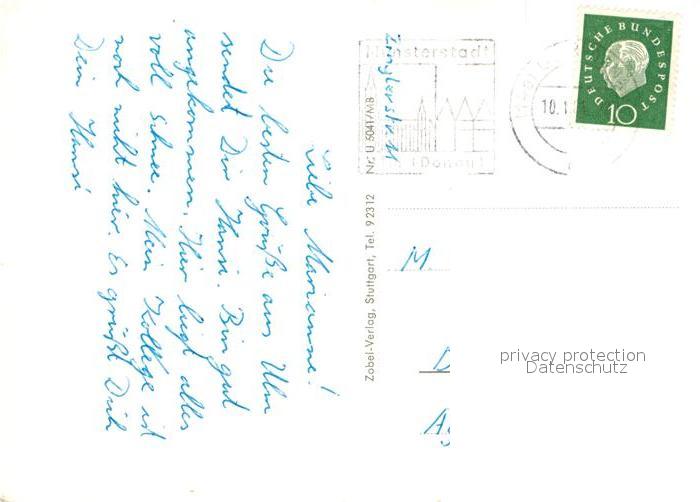 Liebe Marianne!
Die besten Grüße aus Ulm
sendet Dir Hansi. Bin gut
angekommen. Hier liegt alles
voll Schnee. Mein Kollege ist
noch nicht hier. Es grüßt Dich
Dein Hansi
Zobel-Verlag, Stuttgart, Tel. 9 23 12 Nr. U 5041/MB
Münsterstadt
(Donau)
10.1
DEUTSCHE BUNDESPOST
10
M.
D
A
privacy protection
Datenschutz